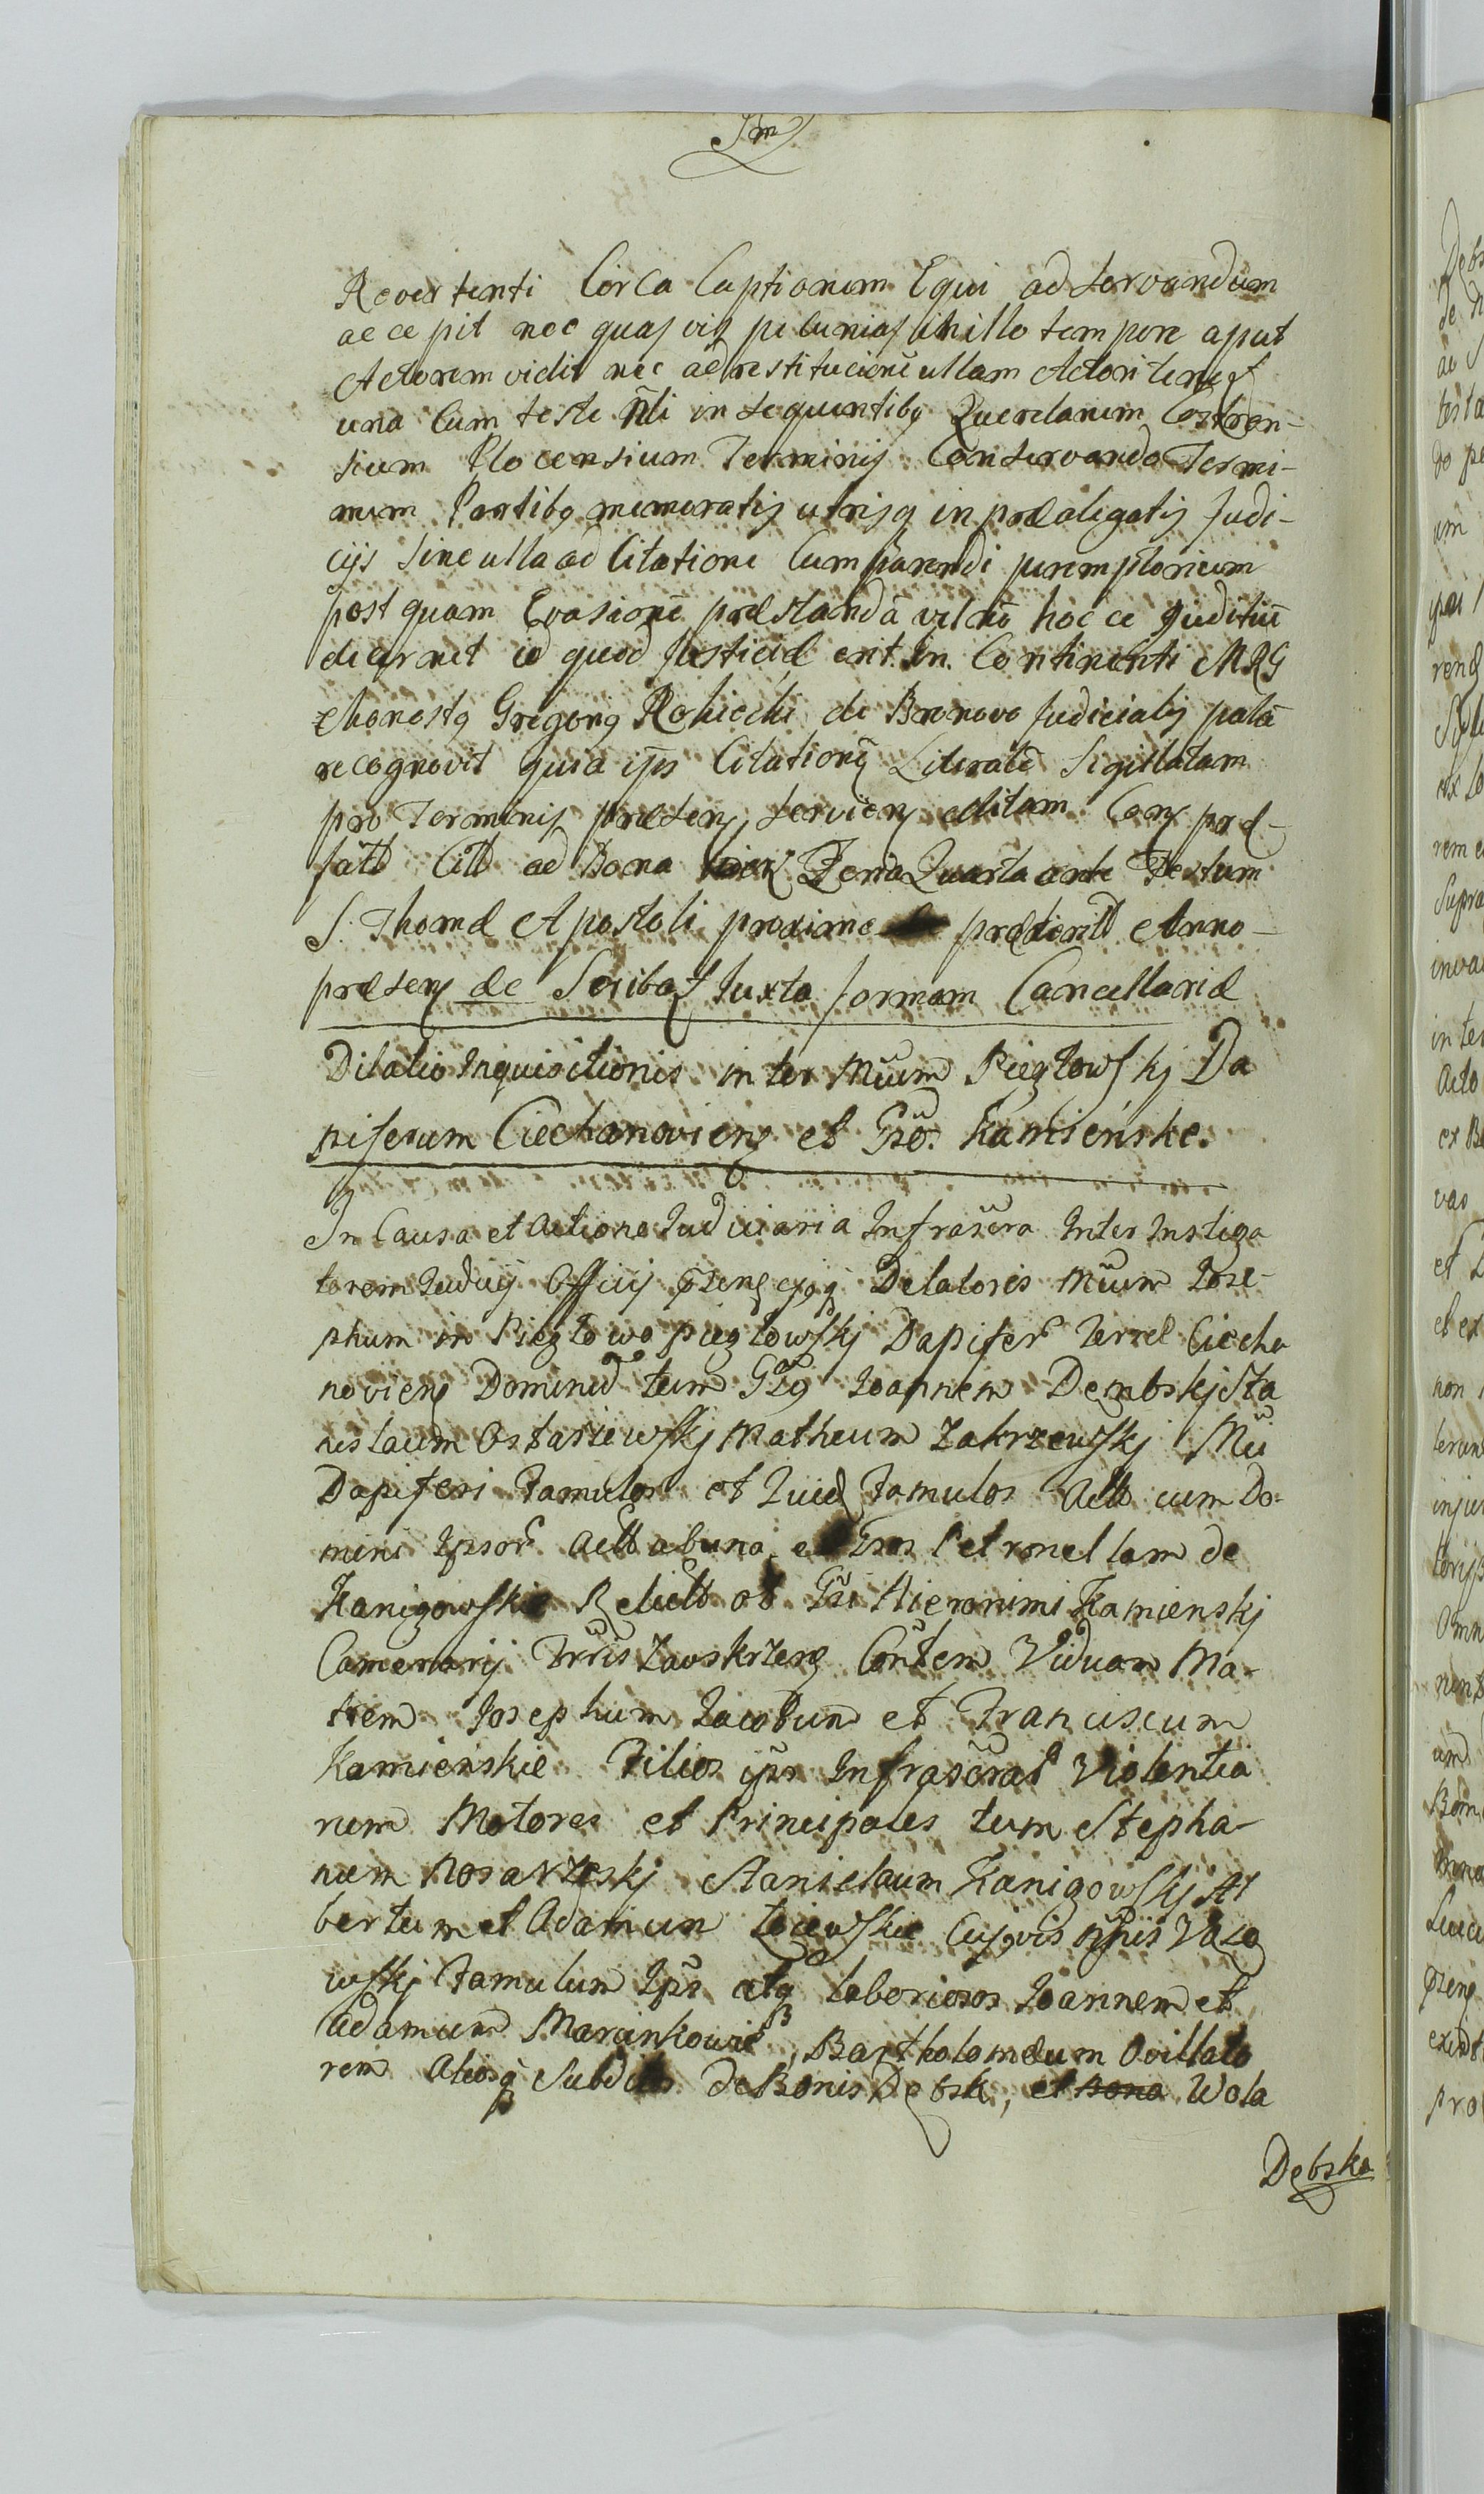 Im
Revertenti Circa Captionem Equi ad servandum
accepit nec quasvis pecunias in illo tempore aput
Actorem vidit nec ad restitucionē ullam Actori tenet
una Cum teste ñti in sequentibq Querelarum Castren-
sium Plocensium Terminis Conservando Termi-
num Partibq memoratis utrisq in præaligatis Judi-
cijs Sine ulla ad Citatione Cumparendi peremptorium
post quam Evasionē præstandā vel nō hoc ce Juditiū
decernet id quod Justiciæ erit. In Continenti MRG
Honestq Gregorig Rokicki de Bronovo Judicialis palā
recognovit quia ijs Citationē Literatē Sigillatam
pro Terminis præsens, serviens editam Cons præ-
fatd Citt ad Bona Feria Quarta ante Festum
S. Thomæ Apostoli proxime præteritd Anno
præsens de Scribas Juxta formam Cancellariæ
Dilatio Inquisitionis inter Mūum Pięzłowskj Da
piferum Ciechanoviens et Gsō. Kamienskie.
In Causa et Actione Judiciaria Infrascra Inter Instiga
torem Judicij Officij pzens ejqq Delatoris Mūum Jose-
phum in Pięgłowo Pięgłowskj Dapiferr Terræ Ciecha
noviens Dominū tum Gsg Joannem Dembskj Sta
nislaum Ostaszewskj Matheum Zakrzewskj Mū
Dapiferi Famulos et Quid Famulos Actt cum Do-
mini Ipsorr Actt abuna, et Gsos Petronellam de
Kanigowskie Relictt ot Gsi Hieronimi Kamienskj
Camerarij Trris Zawskrzens Cōñtem Viduam Ma-
trem Josephum Jacobum et Franciscum
Kamienskie Filios ips Infrascrat Violentia
rum Motores et Principales tum Stepha-
num Nosarzeskj Stanislaum Kanigowskj Al
bertum et Adamum Cujqvis
wskj Famulum Ips atq laboriosos Joannem et
Adamum Marcinkowie, Bartholomæum Ovillato
rem Aliosq Subditos De Bonis Dębsk, et Bona Wola
Dębska